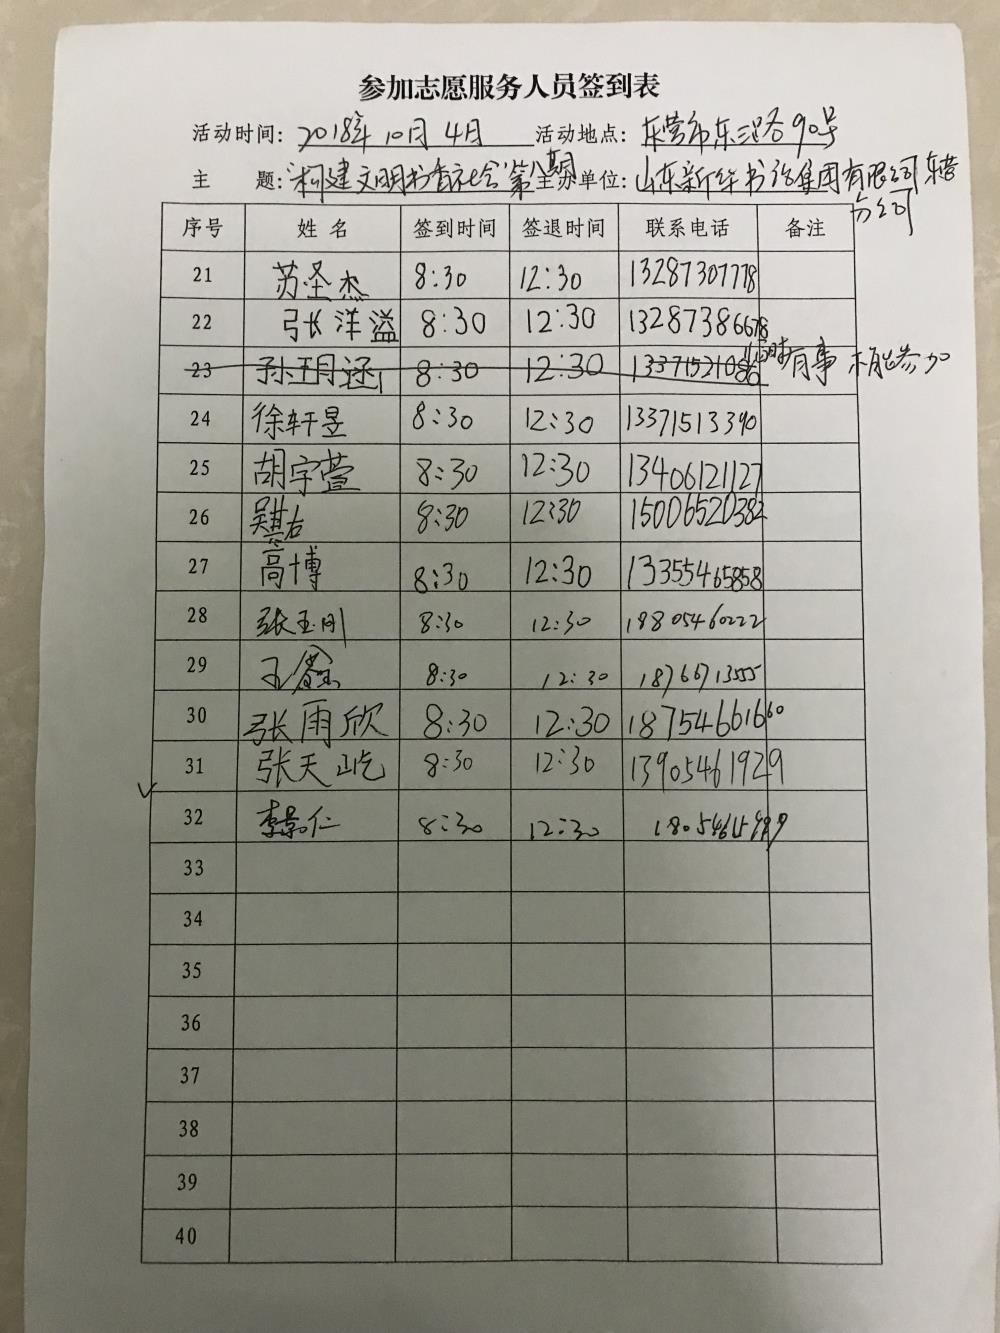 参加志愿服务人员签到表
活动时间: 2018年10月4日 活动地点: 东营市东三路90号
主 题: "构建文明书香社会"第八期 主办单位: 山东新华书店集团有限公司东营
分公司
序号 姓名 签到时间 签退时间 联系电话 备注
21 苏圣杰 8:30 12:30 13287307778
22 张洋溢 8:30 12:30 13287386678
23 孙玥涵 8:30 12:30 13371521086 临时有事 未能参加
24 徐轩昱 8:30 12:30 13371513390
25 胡宇萱 8:30 12:30 13406121127
26 吴其右 8:30 12:30 15006520382
27 高博 8:30 12:30 13355465858
28 张玉刚 8:30 12:30 18805460222
29 王鑫 8:30 12:30 18766713555
30 张雨欣 8:30 12:30 18754661660
31 张天屹 8:30 12:30 13905461929
32 李景仁 8:30 12:30
33
34
35
36
37
38
39
40